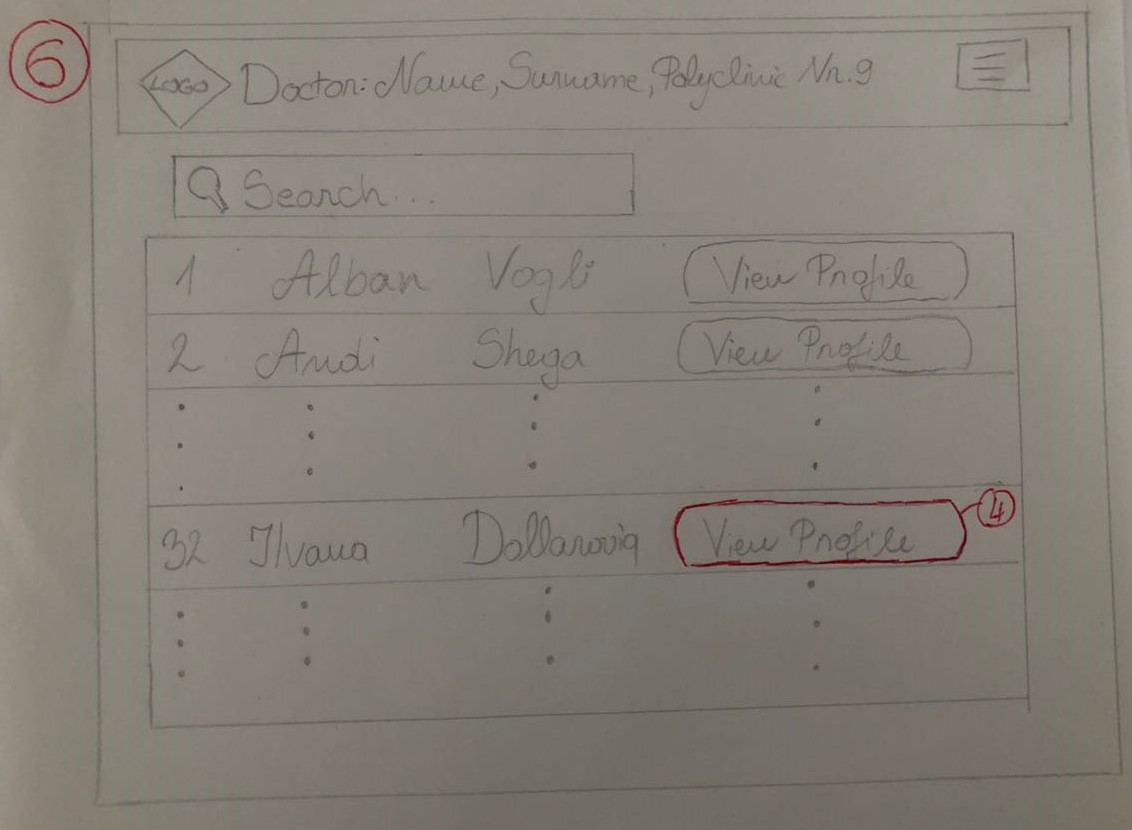 6
LOGO Doctor: Name, Surname, Polyclinic Nr.9
Search...
1 Alban Vogli View Profile
2 Andi Shega View Profile
32 Ilvana Dollarovia View Profile 4